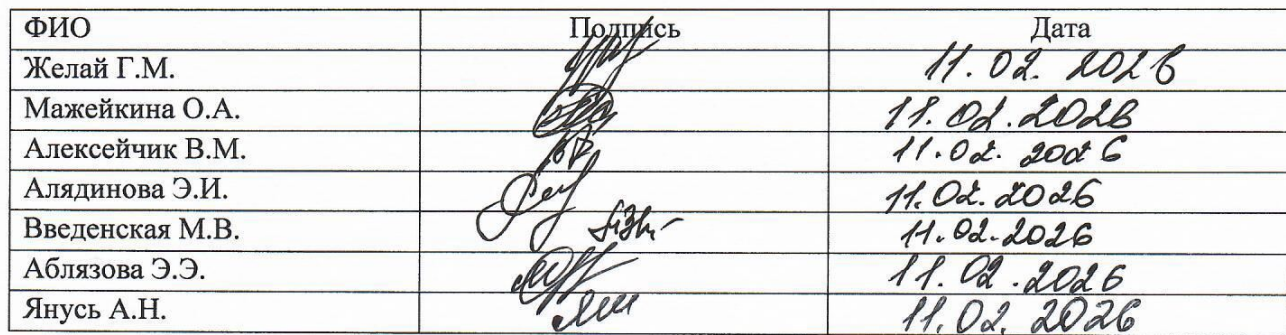 ФИО Подпись Дата
Желай Г.М. 11.02.2026
Мажейкина О.А. 11.02.2026
Алексейчик В.М. 11.02.2026
Алядинова Э.И. 11.02.2026
Введенская М.В. 11.02.2026
Аблязова Э.Э. 11.02.2026
Янусь А.Н. 11.02.2026